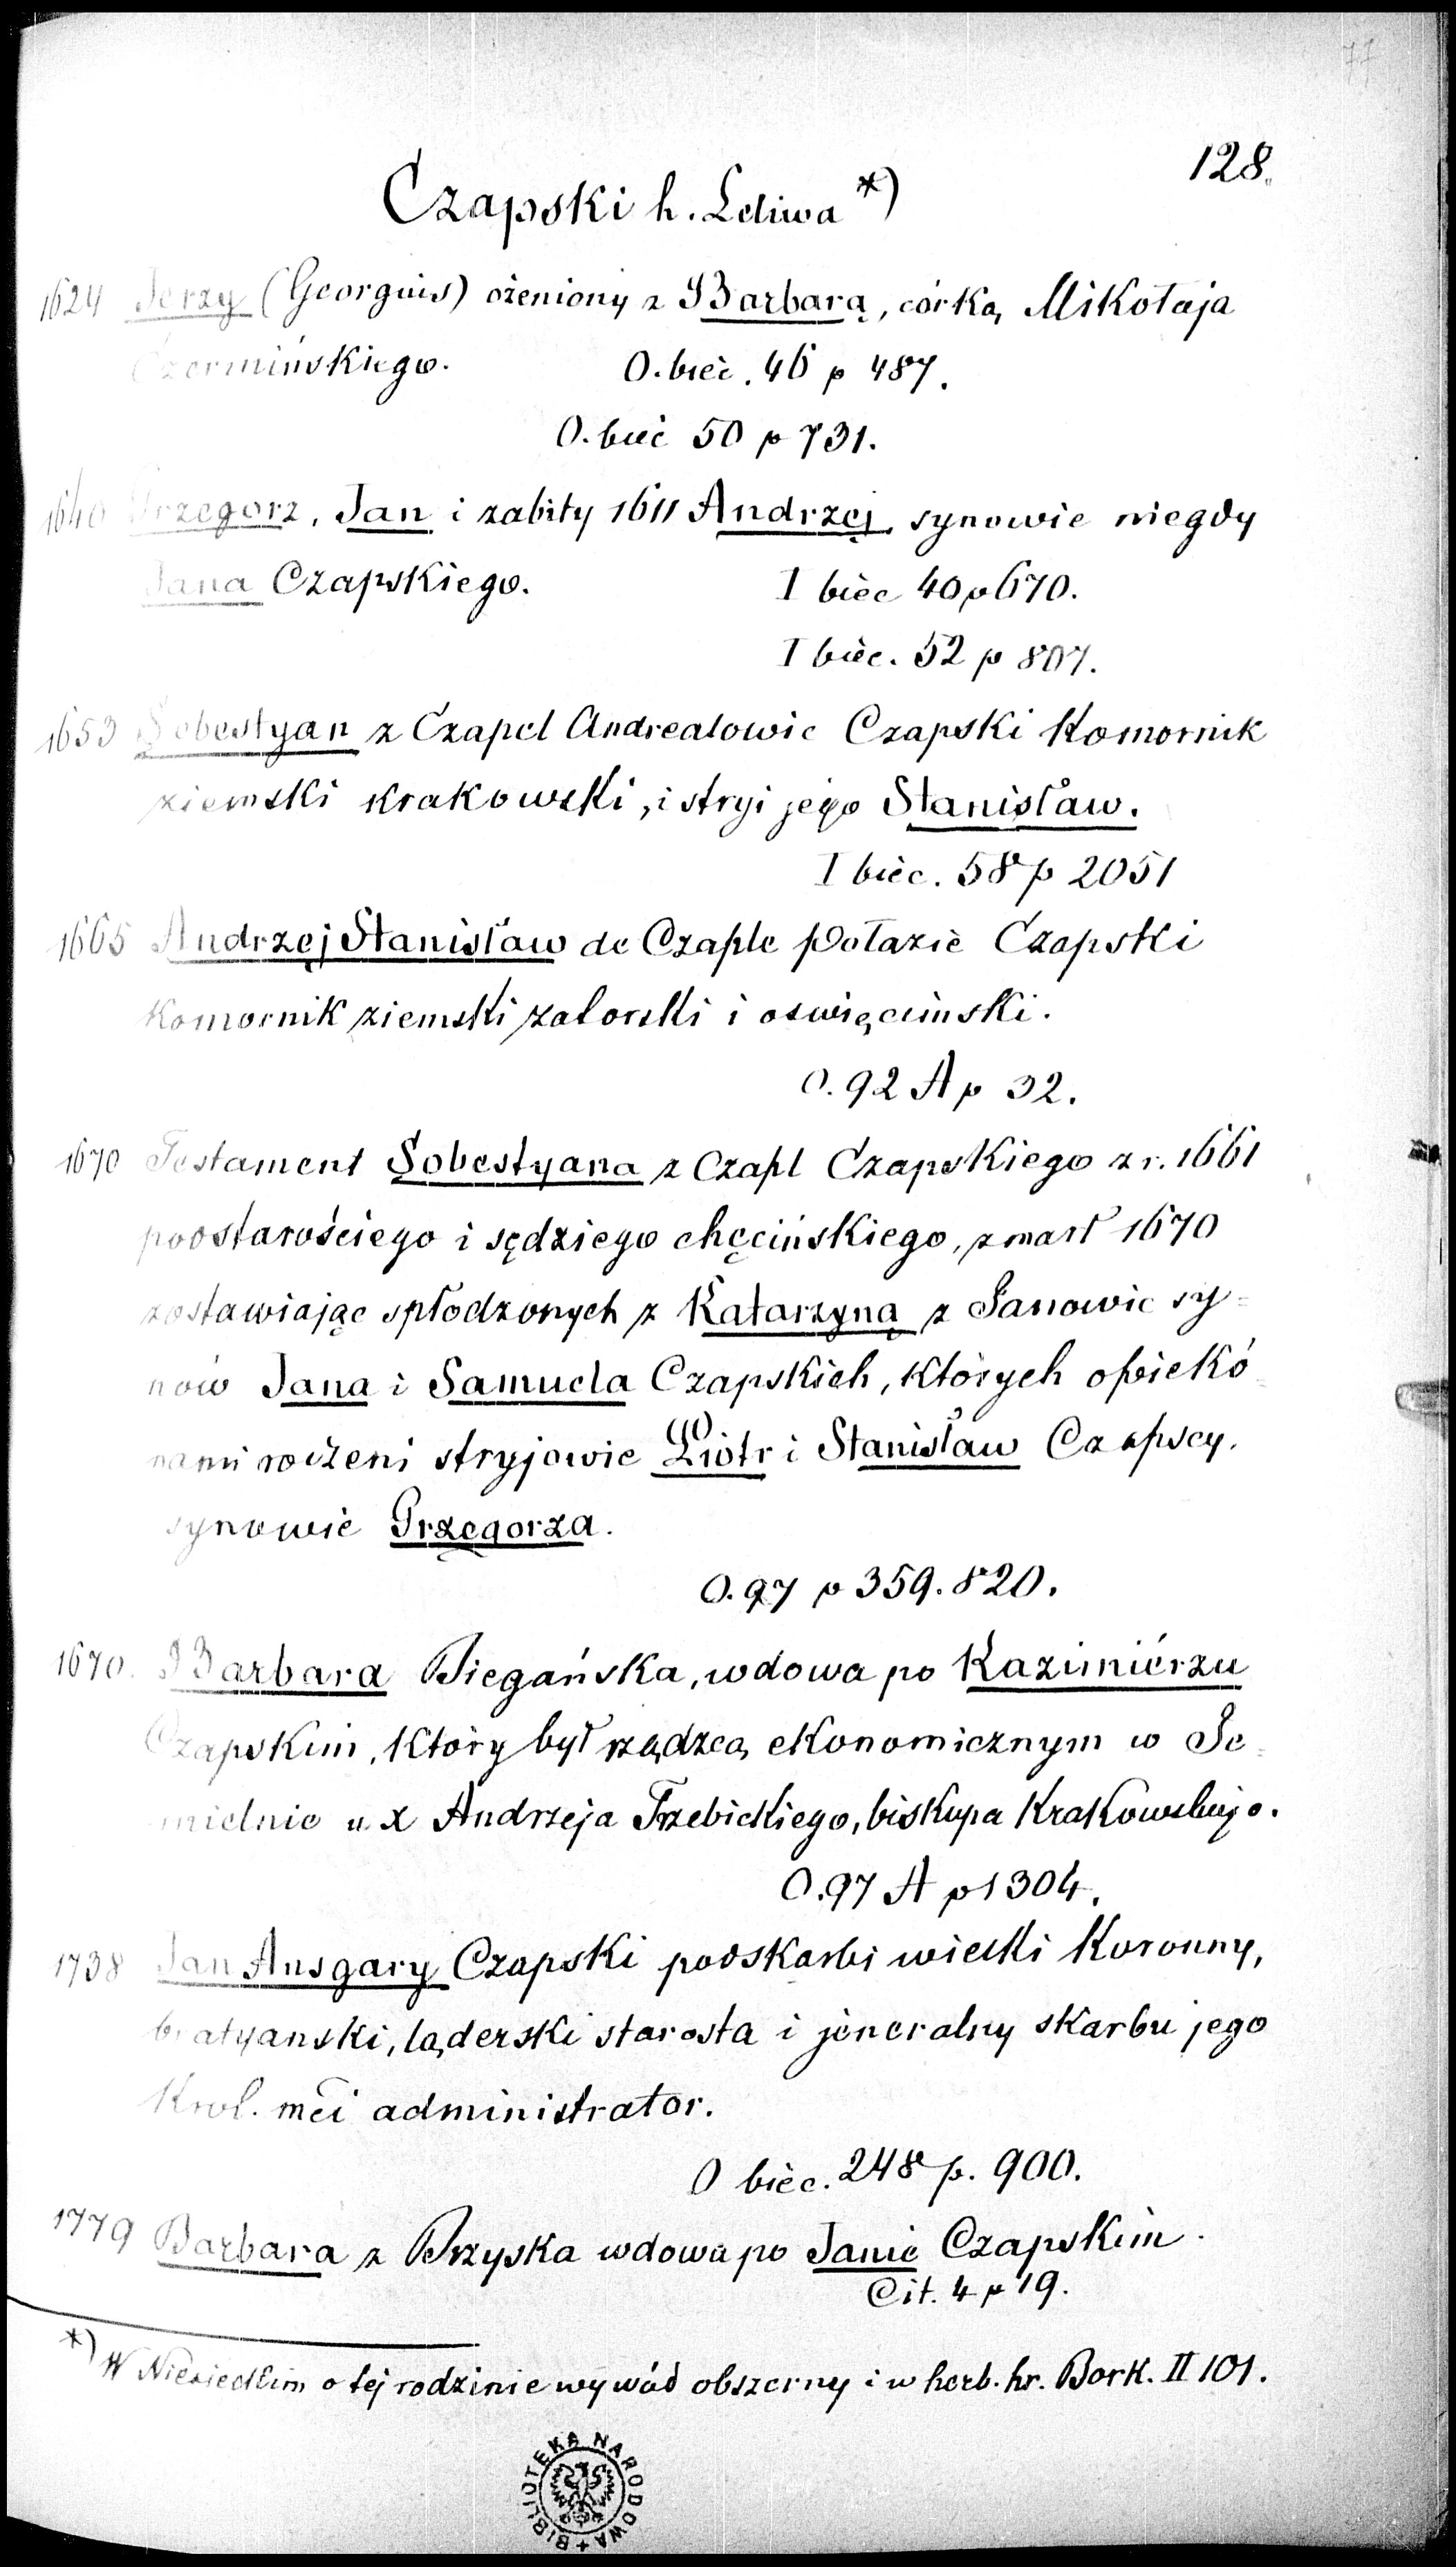 77
128.
Czapski h. Leliwa *)
1624 Jerzy (Georgius) ożeniony z Barbarą, córką Mikołaja
Czermińskiego. O. biec. 46 p 487.
O. biec 50 p 731.
1640 Grzegorz, Jan i zabity 1611 Andrzej, synowie niegdy
Jana Czapskiego. I biec 40 p 670.
I biec. 52 p 807.
1653 Sobestyan z Czapel Czapski Komornik
ziemski krakowski, i stryj jego Stanisław.
I biec. 58 p 2051
1665 Andrzej Stanisław de Czaple Czapski
Komornik ziemski zatorski i oswięcimski.
O. 92 A p 32.
1670 Testament Sobestyana z Czapl Czapskiego z r. 1661
podstarościego i sędziego chęcińskiego, zmarł 1670
zostawiając spłodzonych z Katarzyną z Janowic sy-
nów Jana i Samuela Czapskich, których opiekó-
nami rodzeni stryjowie Piotr i Stanisław Czapscy,
synowie Grzegorza.
O. 97 p 359. 820.
1670. Barbara Biegańska, wdowa po Kazimiérzu
Czapskim, który był rządzcą ekonomicznym w
u X Andrzeja Trzebickiego, biskupa Krakowskiego.
O. 97 A p 1304.
1738 Jan Ansgary Czapski podskarbi wielki Koronny,
bratyanski, ląderski starosta i jeneralny skarbu jego
Krol. mci administrator.
O biec. 248 p. 900.
1779 Barbara z Brzyska wdowa po Janie Czapskim.
Cit. 4 p 19.
*) W Niesieckim o tej rodzinie wywód obszerny i w herb. hr. Bork. II 101.
BIBLIOTEKA NARODOWA